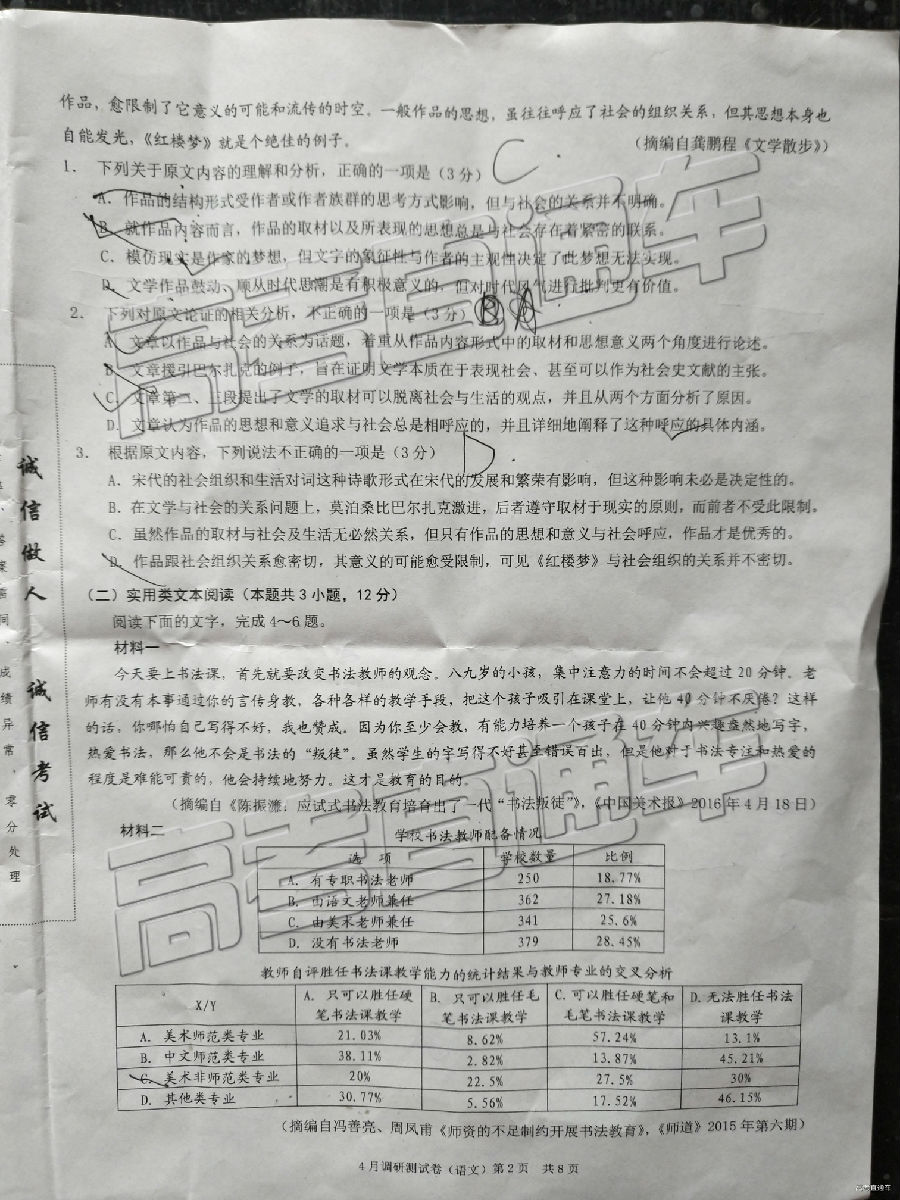 作品，愈限制了它意义的可能和流传的时空。一般作品的思想，虽往往呼应了社会的组织关系，但其思想本身也
自能发光，《红楼梦》就是个绝佳的例子。
（摘编自龚鹏程《文学散步》）
1. 下列关于原文内容的理解和分析，正确的一项是（3分） C
A. 作品的结构形式受作者或作者族群的思考方式影响，但与社会的关系并不明确。
B. 就作品内容而言，作品的取材以及所表现的思想总是与社会存在着紧密的联系。
C. 模仿现实是作家的梦想，但文字的象征性与作者的主观性决定了此梦想无法实现。
D. 文学作品鼓动、顺从时代思潮是有积极意义的，但对时代风气进行批判更有价值。
2. 下列对原文论证的相关分析，不正确的一项是（3分）
A. 文章以作品与社会的关系为话题，着重从作品内容形式中的取材和思想意义两个角度进行论述。
B. 文章援引巴尔扎克的例子，旨在证明文学本质在于表现社会、甚至可以作为社会史文献的主张。
C. 文章第二、三段提出了文学的取材可以脱离社会与生活的观点，并且从两个方面分析了原因。
D. 文章认为作品的思想和意义追求与社会总是相呼应的，并且详细地阐释了这种呼应的具体内涵。
3. 根据原文内容，下列说法不正确的一项是（3分） D
A. 宋代的社会组织和生活对词这种诗歌形式在宋代的发展和繁荣有影响，但这种影响未必是决定性的。
B. 在文学与社会的关系问题上，莫泊桑比巴尔扎克激进，后者遵守取材于现实的原则，而前者不受此限制。
C. 虽然作品的取材与社会及生活无必然关系，但只有作品的思想和意义与社会呼应，作品才是优秀的。
D. 作品跟社会组织关系愈密切，其意义的可能愈受限制，可见《红楼梦》与社会组织的关系并不密切。
（二）实用类文本阅读（本题共3小题，12分）
阅读下面的文字，完成4～6题。
材料一
今天要上书法课，首先就要改变书法教师的观念。八九岁的小孩，集中注意力的时间不会超过20分钟。老
师有没有本事通过你的言传身教，各种各样的教学手段，把这个孩子吸引在课堂上，让他40分钟不厌倦？这样
的话，你哪怕自己写得不好，我也赞成。因为你至少会教，有能力培养一个孩子在40分钟内兴趣盎然地写字，
热爱书法，那么他不会是书法的“叛徒”。虽然学生的字写得不好甚至错误百出，但是他对于书法专注和热爱的
程度是难能可贵的，他会持续地努力。这才是教育的目的。
（摘编自《陈振濂：应试式书法教育培育出了一代“书法叛徒”》，《中国美术报》2016年4月18日）
材料二
学校书法教师配备情况
选 项 学校数量 比例
A. 有专职书法老师 250 18.77%
B. 由语文老师兼任 362 27.18%
C. 由美术老师兼任 341 25.6%
D. 没有书法老师 379 28.45%
教师自评胜任书法课教学能力的统计结果与教师专业的交叉分析
X/Y A. 只可以胜任硬笔书法课教学 B. 只可以胜任毛笔书法课教学 C. 可以胜任硬笔和毛笔书法课教学 D. 无法胜任书法课教学
A. 美术师范类专业 21.03% 8.62% 57.24% 13.1%
B. 中文师范类专业 38.11% 2.82% 13.87% 45.21%
C. 美术非师范类专业 20% 22.5% 27.5% 30%
D. 其他类专业 30.77% 5.56% 17.52% 46.15%
（摘编自冯善亮、周凤甫《师资的不足制约开展书法教育》，《师道》2015年第六期）
4月调研测试卷（语文）第2页 共8页
诚信做人 诚信考试
成绩异常，零分处理
高考直通车
高考直通车
高考直通车